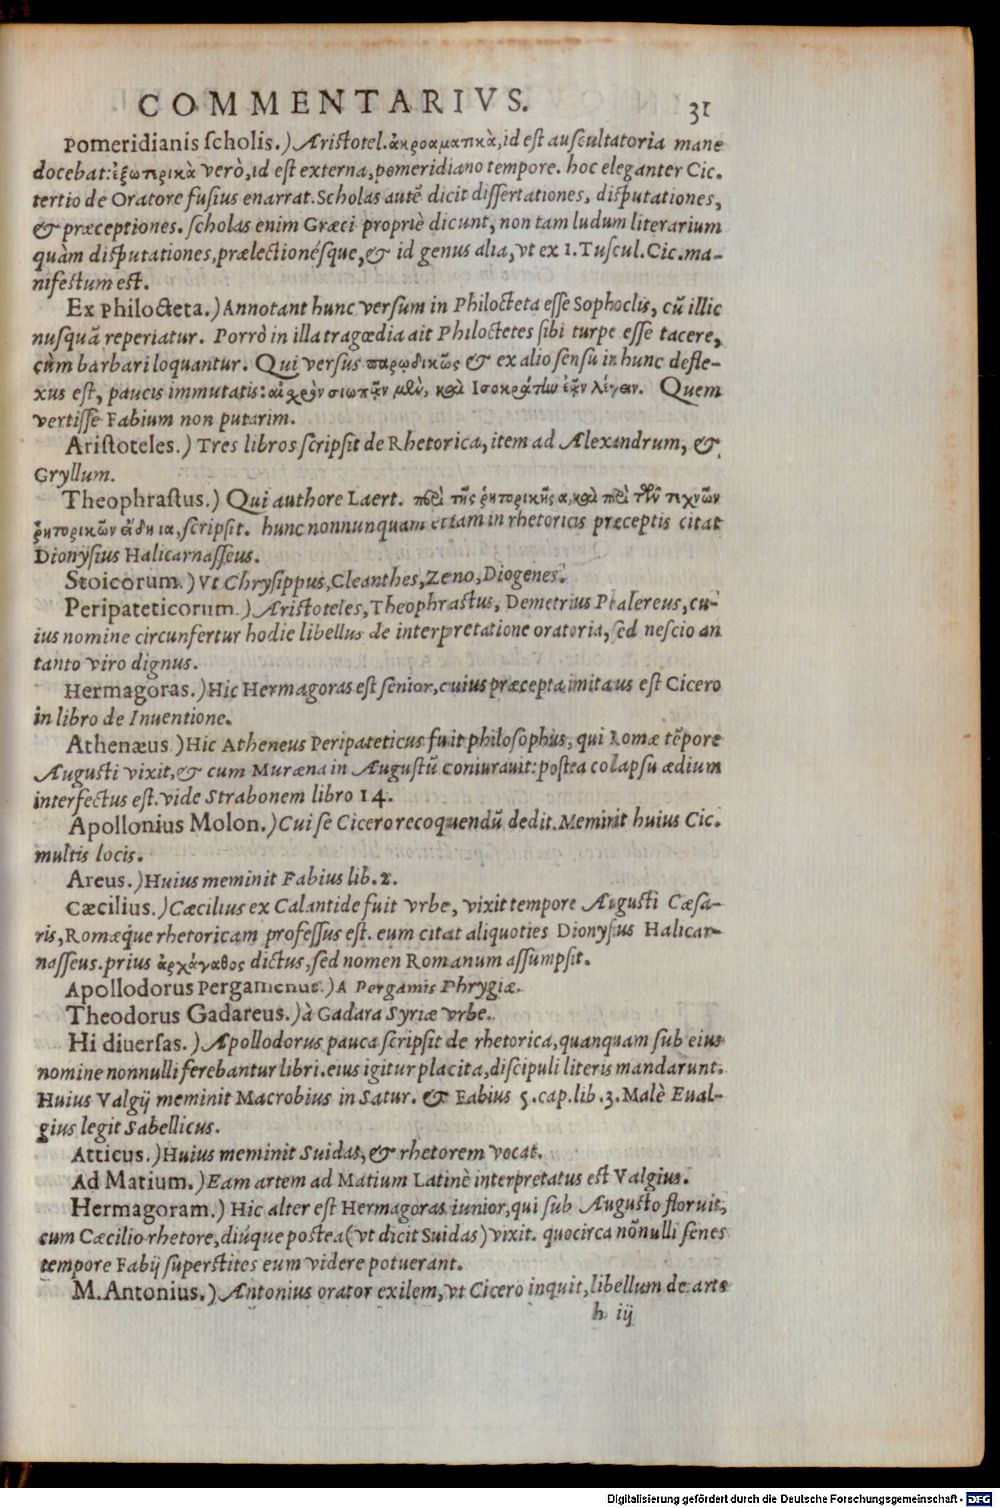 COMMENTARIVS. 31
Pomeridianis scholis.) Aristotel. ἀκροαματικὰ, id est auscultatoria mane
docebat: ἐξωτερικὰ verò, id est externa, pomeridiano tempore. hoc eleganter Cic.
tertio de Oratore fusius enarrat. Scholas autē dicit dissertationes, disputationes,
& præceptiones. scholas enim Græci propriè dicunt, non tam ludum literarium
quàm disputationes, prælectionésque, & id genus alia, vt ex 1. Tuscul. Cic. ma-
nifestum est.
Ex Philocteta.) Annotant hunc versum in Philocteta esse Sophoclis, cū illic
nusquā reperiatur. Porrò in illa tragœdia ait Philoctetes sibi turpe esse tacere,
cùm barbari loquantur. Qui versus παρωδικῶς & ex alio sensu in hunc defle-
xus est, paucis immutatis: αἰσχρὸν σιωπᾶν μὲν, καὶ Ισοκράτην ἐᾶν λέγειν. Quem
vertisse Fabium non putarim.
Aristoteles.) Tres libros scripsit de Rhetorica, item ad Alexandrum, &
Gryllum.
Theophrastus.) Qui authore Laert. περὶ τῆς ῥητορικῆς α, καὶ περὶ τῶν τεχνῶν
ῥητορικῶν εἴδη ια, scripsit. hunc nonnunquam etiam in rhetoricis præceptis citat
Dionysius Halicarnasseus.
Stoicorum.) Vt Chrysippus, Cleanthes, Zeno, Diogenes.
Peripateticorum.) Aristoteles, Theophrastus, Demetrius Phalereus, cu-
ius nomine circunfertur hodie libellus de interpretatione oratoria, sed nescio an
tanto viro dignus.
Hermagoras.) Hic Hermagoras est senior, cuius præcepta imitatus est Cicero
in libro de Inuentione.
Athenæus.) Hic Atheneus Peripateticus fuit philosophus, qui Romæ tēpore
Augusti vixit, & cum Muræna in Augustū coniurauit: postea colapsu ædium
interfectus est. vide Strabonem libro 14.
Apollonius Molon.) Cui se Cicero recoquendū dedit. Meminit huius Cic.
multis locis.
Areus.) Huius meminit Fabius lib. 2.
Cæcilius.) Cæcilius ex Calantide fuit vrbe, vixit tempore Augusti Cæsa-
ris, Romæque rhetoricam professus est. eum citat aliquoties Dionysius Halicar-
nasseus. prius ἀρχάγαθος dictus, sed nomen Romanum assumpsit.
Apollodorus Pergamenus.) A Pergamis Phrygiæ.
Theodorus Gadareus.) à Gadara Syriæ vrbe.
Hi diuersas.) Apollodorus pauca scripsit de rhetorica, quanquam sub eius
nomine nonnulli ferebantur libri. eius igitur placita, discipuli literis mandarunt.
Huius Valgij meminit Macrobius in Satur. & Fabius 5. cap. lib. 3. Malè Eual-
gius legit Sabellicus.
Atticus.) Huius meminit Suidas, & rhetorem vocat.
Ad Matium.) Eam artem ad Matium Latinè interpretatus est Valgius.
Hermagoram.) Hic alter est Hermagoras iunior, qui sub Augusto floruit,
cum Cæcilio rhetore, diúque postea (vt dicit Suidas) vixit. quocirca nōnulli senes
tempore Fabij superstites eum videre potuerant.
M. Antonius.) Antonius orator exilem, vt Cicero inquit, libellum de arte
h iij
Digitalisierung gefördert durch die Deutsche Forschungsgemeinschaft - DFG